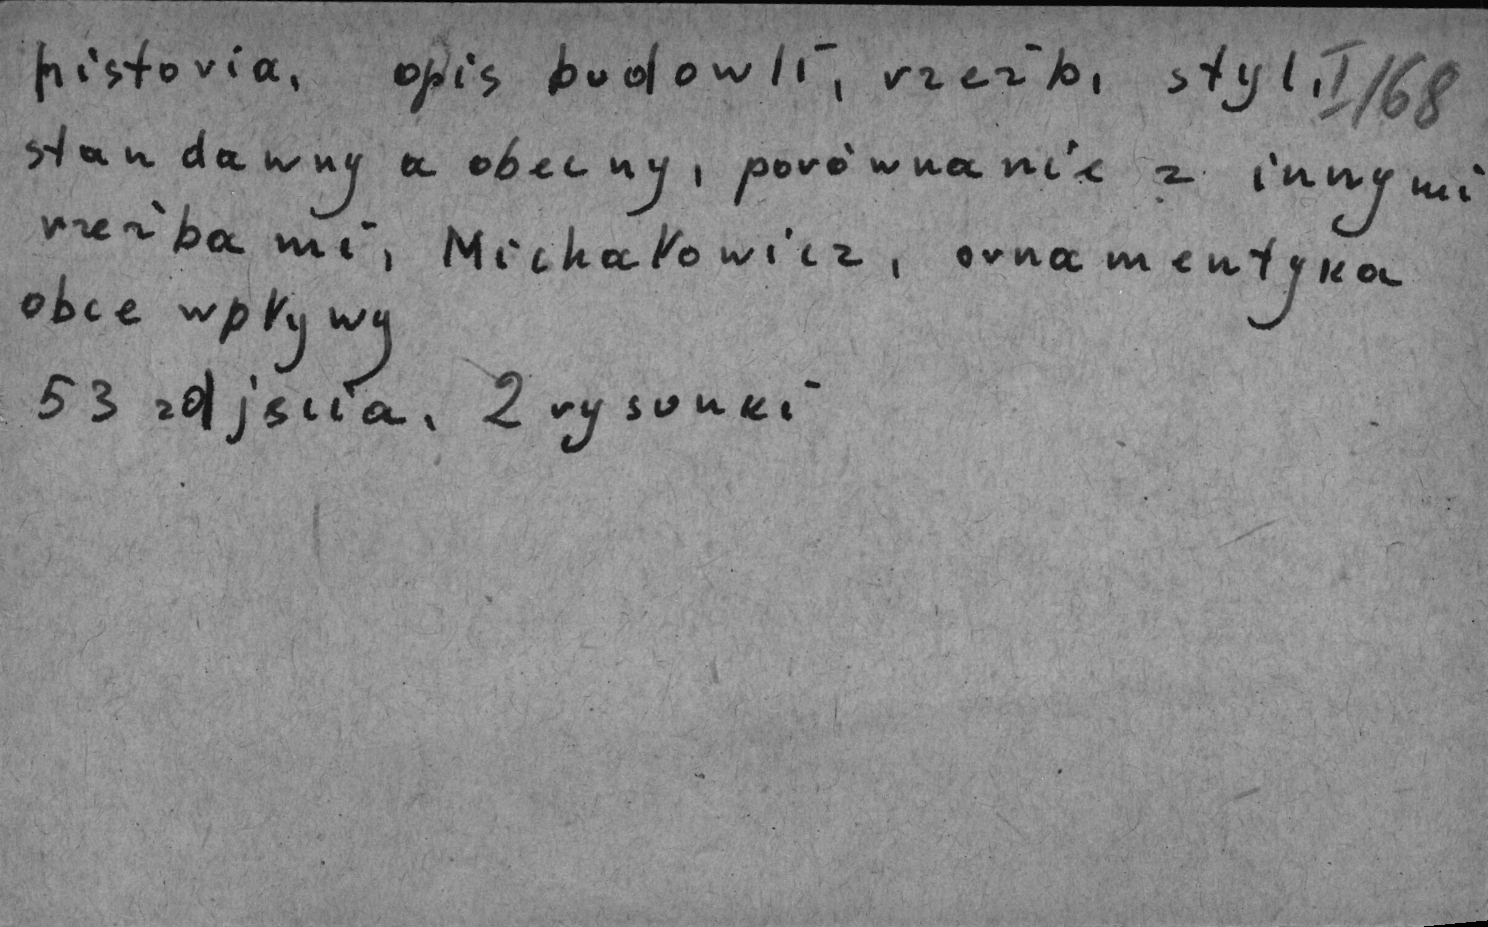 historia, opis budowli, rzeźb, styl, I/68
stan dawny a obecny, porównanie z innymi
rzeźbami, Michałowicz, ornamentyka
obce wpływy
53 zdjęcia, 2 rysunki